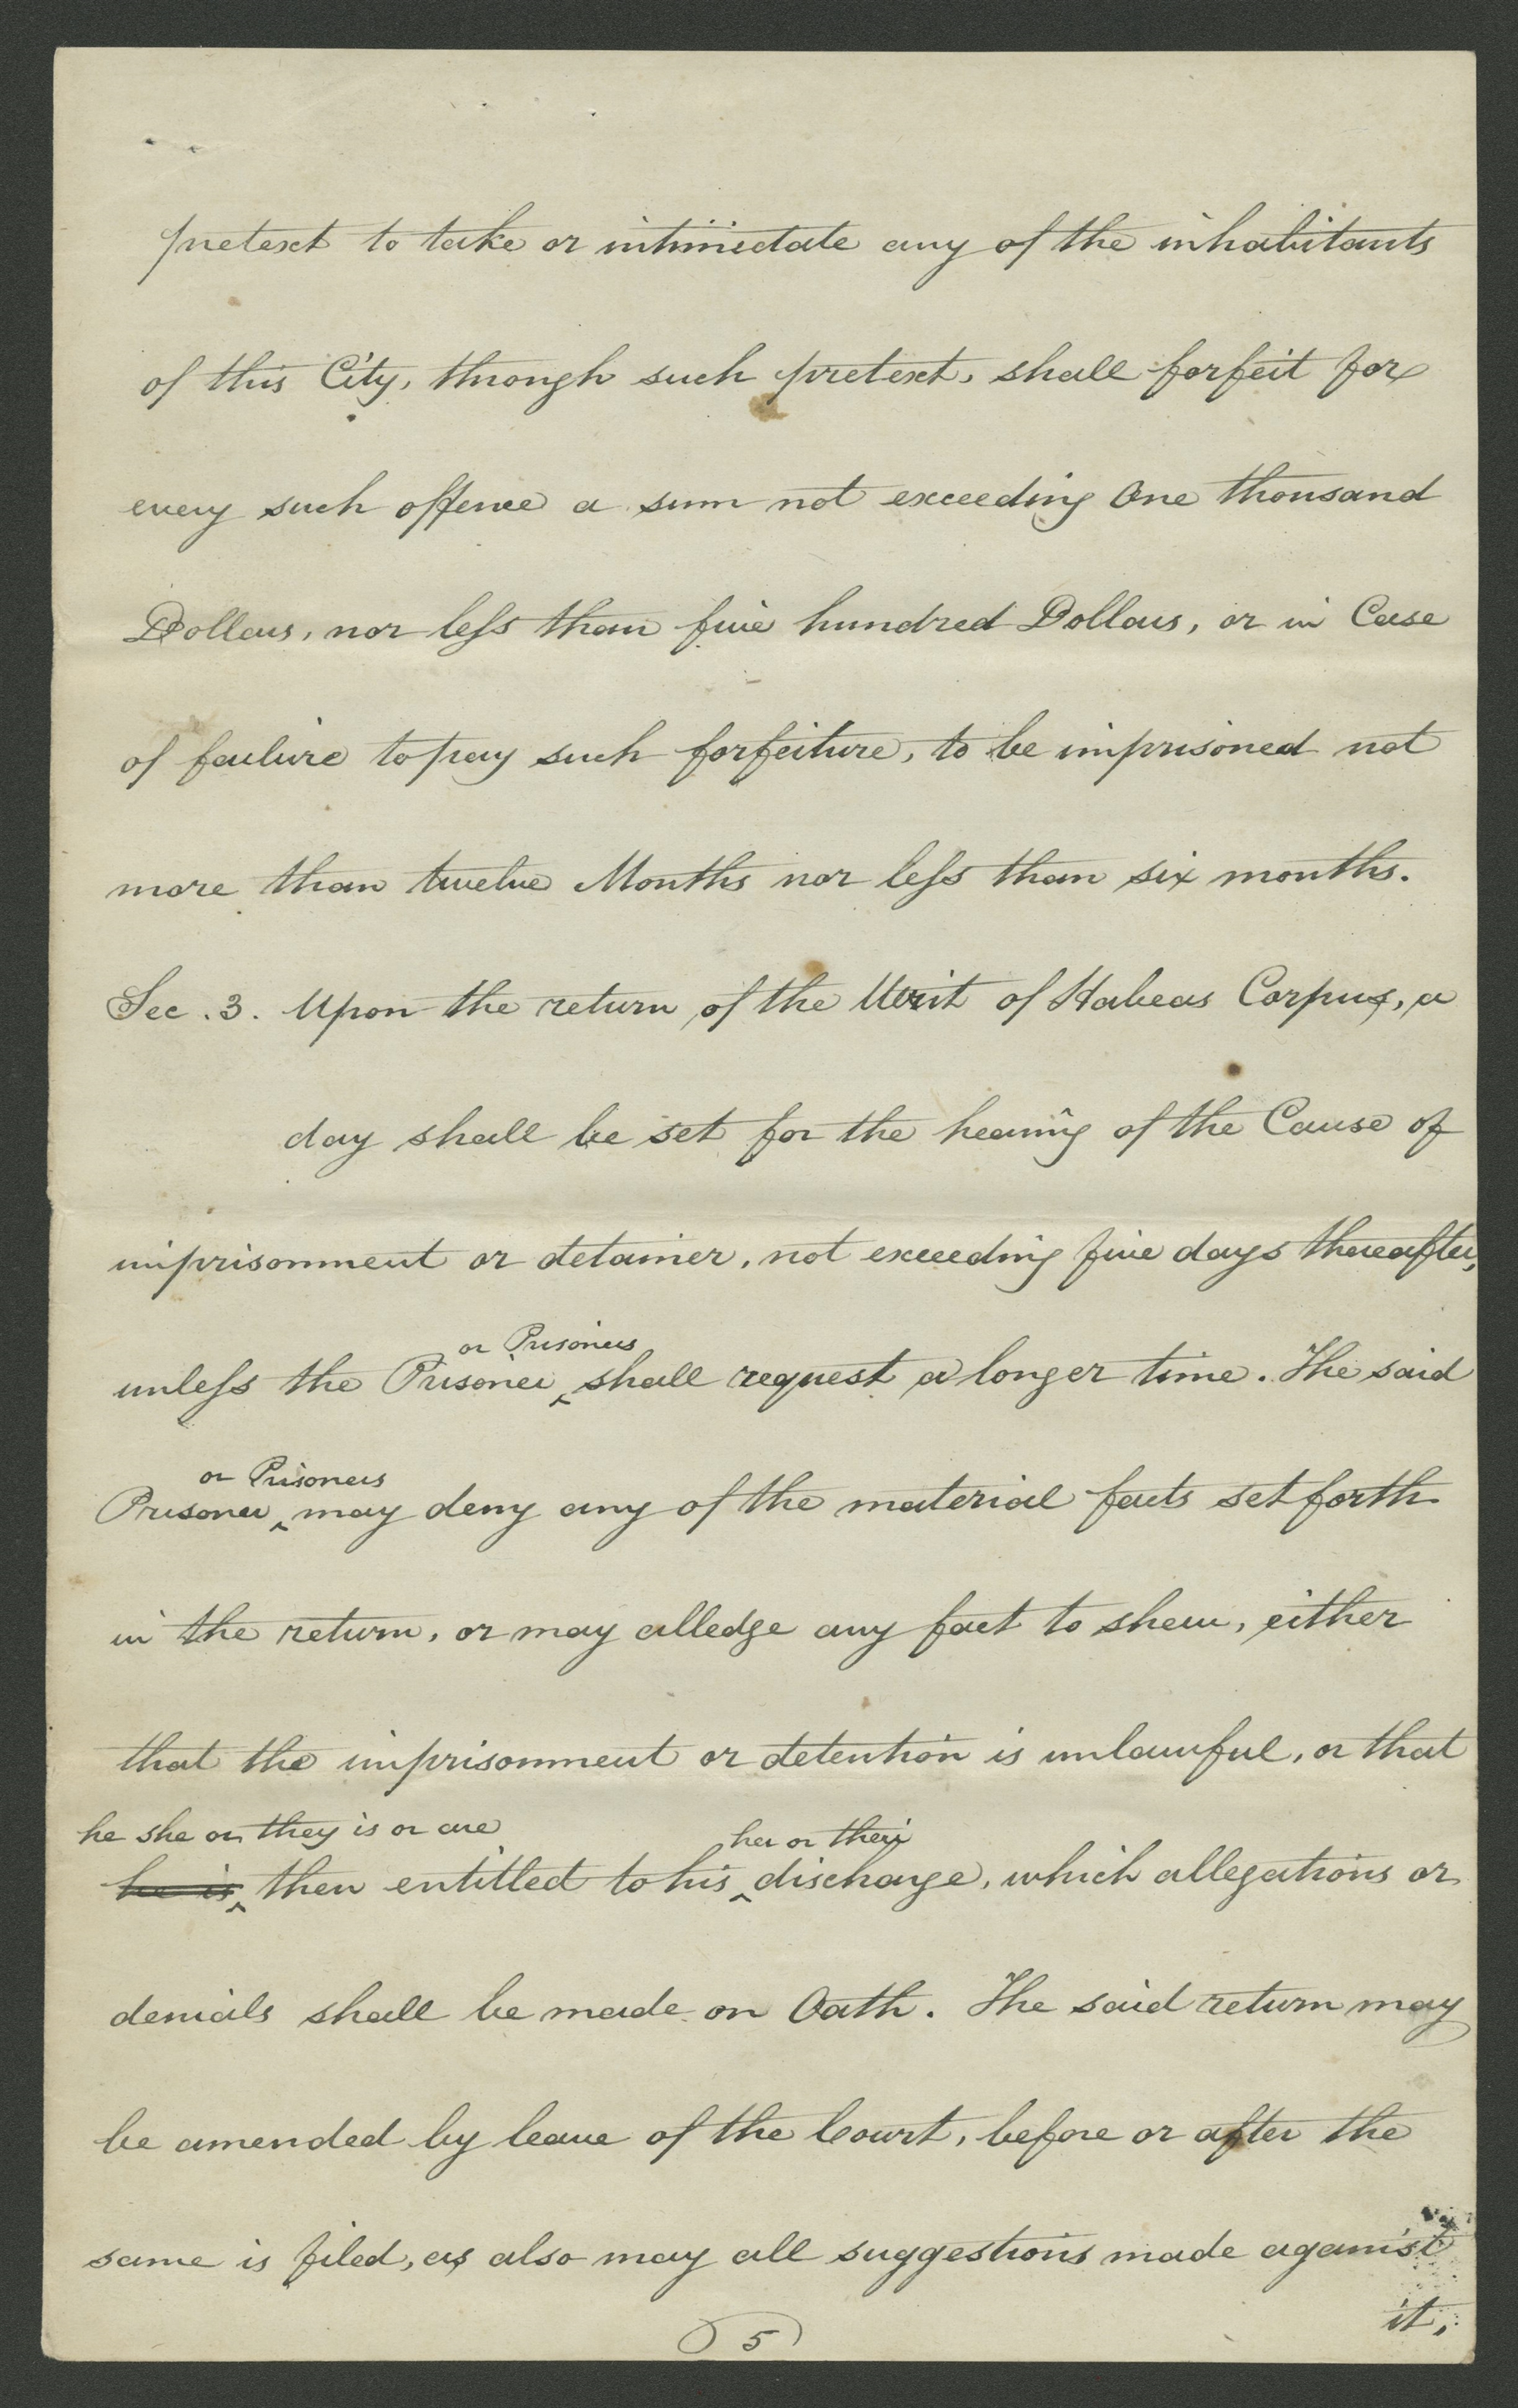 pretext to take or intimidate any of the inhabitants
of this City, through such pretext, shall forfeit for
every such offence a sum not exceeding One thousand
Dollars, nor less than five hundred Dollars, or in Case
of failure to pay such forfeiture, to be imprisoned not
more than twelve Months nor less than six months.
Sec. 3. Upon the return of the Writ of Habeas Corpus, a
day shall be set for the hearing of the Cause of
imprisonment or detainer, not exceeding five days thereafter,
or Prisoners
unless the Prisoner ‸ shall request a longer time. The said
or Prisoners
Prisoner ‸ may deny any of the material facts set forth
in the return, or may alledge any fact to shew, either
that the imprisonment or detention is unlawful, or that
he she or they is or are her or their
he is ‸ then entitled to his ‸ discharge, which allegations or
denials shall be made on Oath. The said return may
be amended by leave of the Court, before or after the
same is filed, as also may all suggestions made against
it,
5